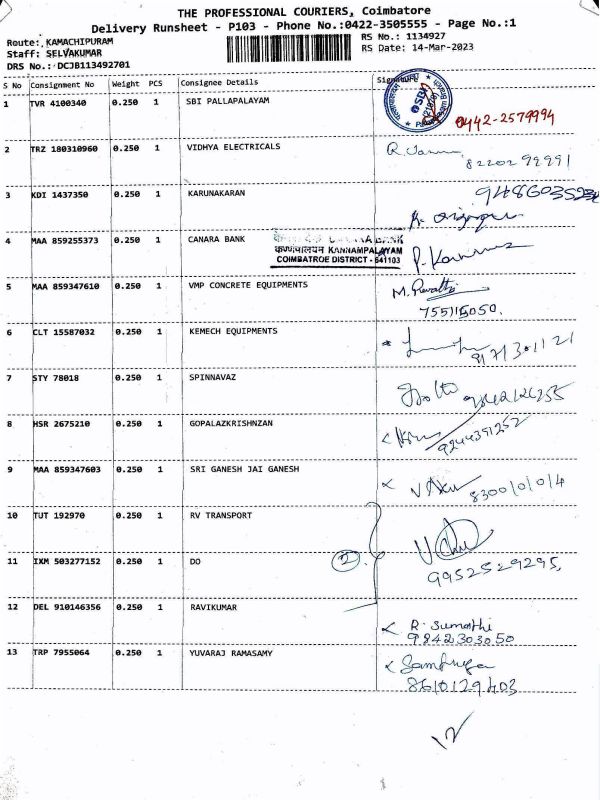 THE PROFESSIONAL COURIERS, Coimbatore
Delivery Runsheet - P103 - Phone No.:0422-3505555 - Page No.:1
Route: KAMACHIPURAM
RS No.: 1134927
Staff: SELVAKUMAR
RS Date: 14-Mar-2023
DRS No.: DCJB113492701
S No Consignment No Weight PCS Consignee Details Signature
1 TVR 4100340 0.250 1 SBI PALLAPALAYAM
SBI
0442-2579994
2 TRZ 180310960 0.250 1 VIDHYA ELECTRICALS
8220292991
3 KDI 1437350 0.250 1 KARUNAKARAN
4 MAA 859255373 0.250 1 CANARA BANK
KANNAMPALAYAM
COIMBATROE DISTRICT - 641103
5 MAA 859347610 0.250 1 VMP CONCRETE EQUIPMENTS
M. Revathi
6 CLT 15587032 0.250 1 KEMECH EQUIPMENTS
7 STY 78018 0.250 1 SPINNAVAZ
8 HSR 2675210 0.250 1 GOPALAZKRISHNZAN
9244391252
9 MAA 859347603 0.250 1 SRI GANESH JAI GANESH
10 TUT 192970 0.250 1 RV TRANSPORT
11 IXM 503277152 0.250 1 DO
2
9952529295
12 DEL 910146356 0.250 1 RAVIKUMAR
R. Sumathi
9842303050
13 TRP 7955064 0.250 1 YUVARAJ RAMASAMY
8610129403
12